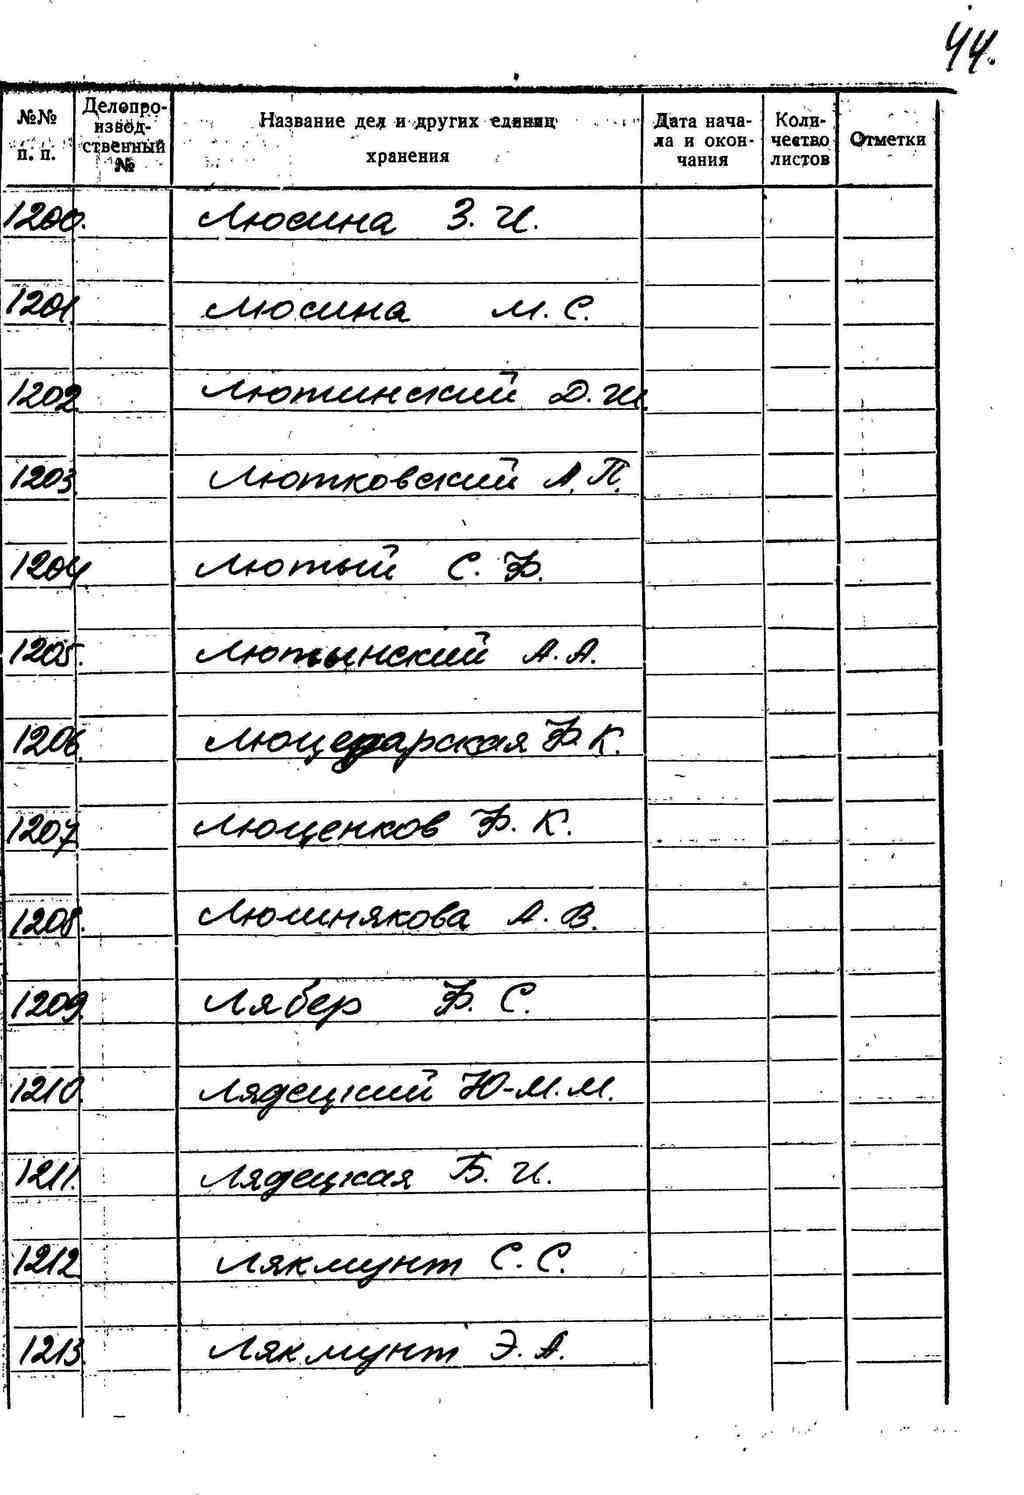 44.
№№ п. п. Делопроизводственный № Название дел и других единиц хранения Дата начала и окончания Количество листов Отметки
1200. Люсина З. И.
1201. Люсина М. С.
1202. Лютинский Д. И.
1203. Лютковский А. П.
1204. Лютый С. Ф.
1205. Лютынский А. А.
1206. Люцедарская Ф. К.
1207. Люценков Ф. К.
1208. Люшнякова А. В.
1209. Лябер Ф. С.
1210. Лядецкий Ю-М. М.
1211. Лядецкая Б. И.
1212. Лякмунт С. С.
1213. Лякмунт Э. А.